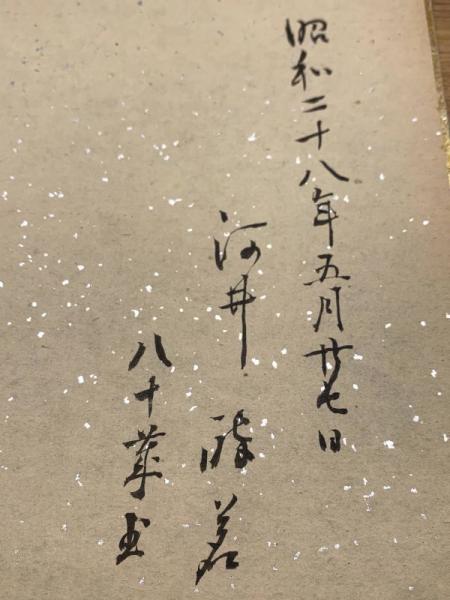 昭和二十八年五月廿七日
河井酔茗
八十